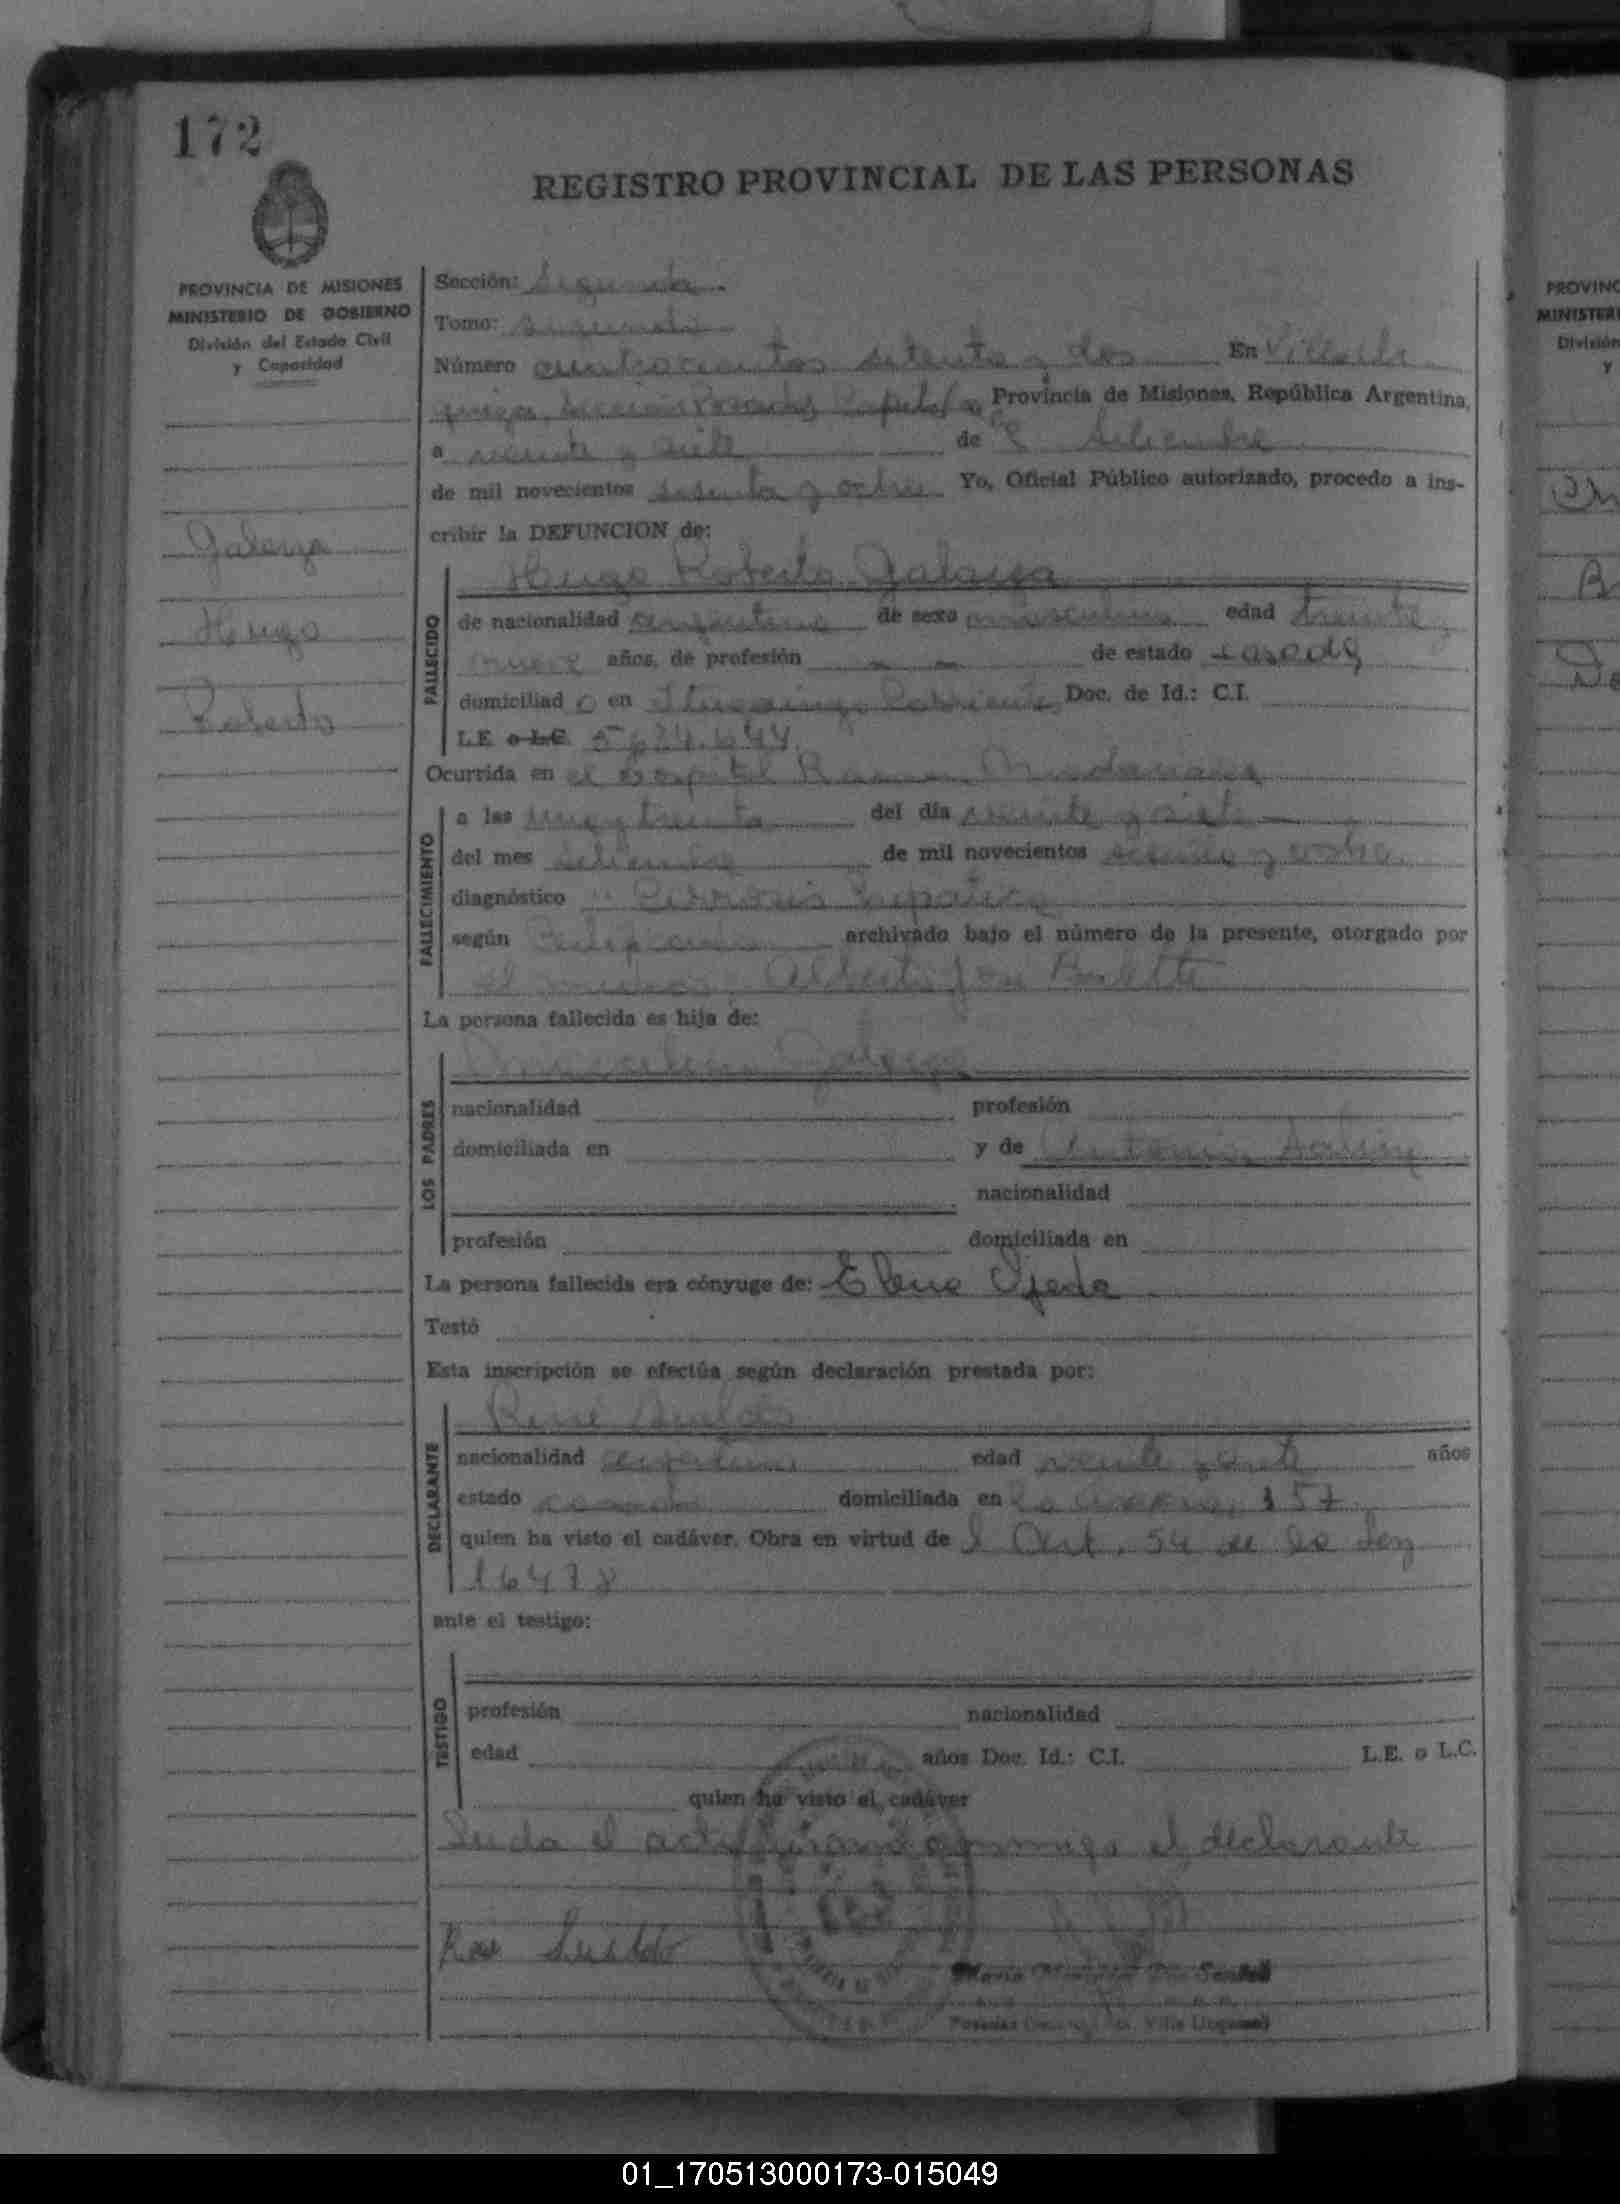 172
REGISTRO PROVINCIAL DE LAS PERSONAS
PROVINCIA DE MISIONES
MINISTERIO DE GOBIERNO
División del Estado Civil
y Capacidad
Galarza
Hugo
Roberto
Sección: Segunda.
Tomo: segundo
Número cuatrocientos setenta y dos En Villa Ur
quiza, sección Posadas Capital Provincia de Misiones, República Argentina,
a veinte y siete de Setiembre
de mil novecientos sesenta y ocho Yo, Oficial Público autorizado, procedo a ins-
cribir la DEFUNCION de:
FALLECIDO
Hugo Roberto Galarza
de nacionalidad argentina de sexo masculino edad treinta y
nueve años, de profesión de estado casado
domiciliado en Ituzaingo Corrientes Doc. de Id.: C.I.
L.E. o L.C. 5624.644
Ocurrida en el hospital Ramon Madariaga
FALLECIMIENTO
a las una y treinta del día veinte y siete
del mes setiembre de mil novecientos sesenta y ocho
diagnóstico Cirrosis hepática
según Certificado archivado bajo el número de la presente, otorgado por
el medico Alberto
La persona fallecida es hija de:
LOS PADRES
Marcelino Galarza
nacionalidad profesión
domiciliada en y de Antonia
nacionalidad
profesión domiciliada en
La persona fallecida era cónyuge de: Elena Ojeda
Testó
Esta inscripción se efectúa según declaración prestada por:
DECLARANTE
René
nacionalidad argentina edad veinte y siete años
estado casado domiciliada en 157
quien ha visto el cadáver. Obra en virtud de l Art. 54 de la Ley
16478
ante el testigo:
TESTIGO
profesión nacionalidad
edad años Doc. Id.: C.I. L.E. o L.C.
quien ha visto el cadáver
Leida el acta firmando conmigo el declarante
PROVINC
MINISTERI
División
y
01_170513000173-015049